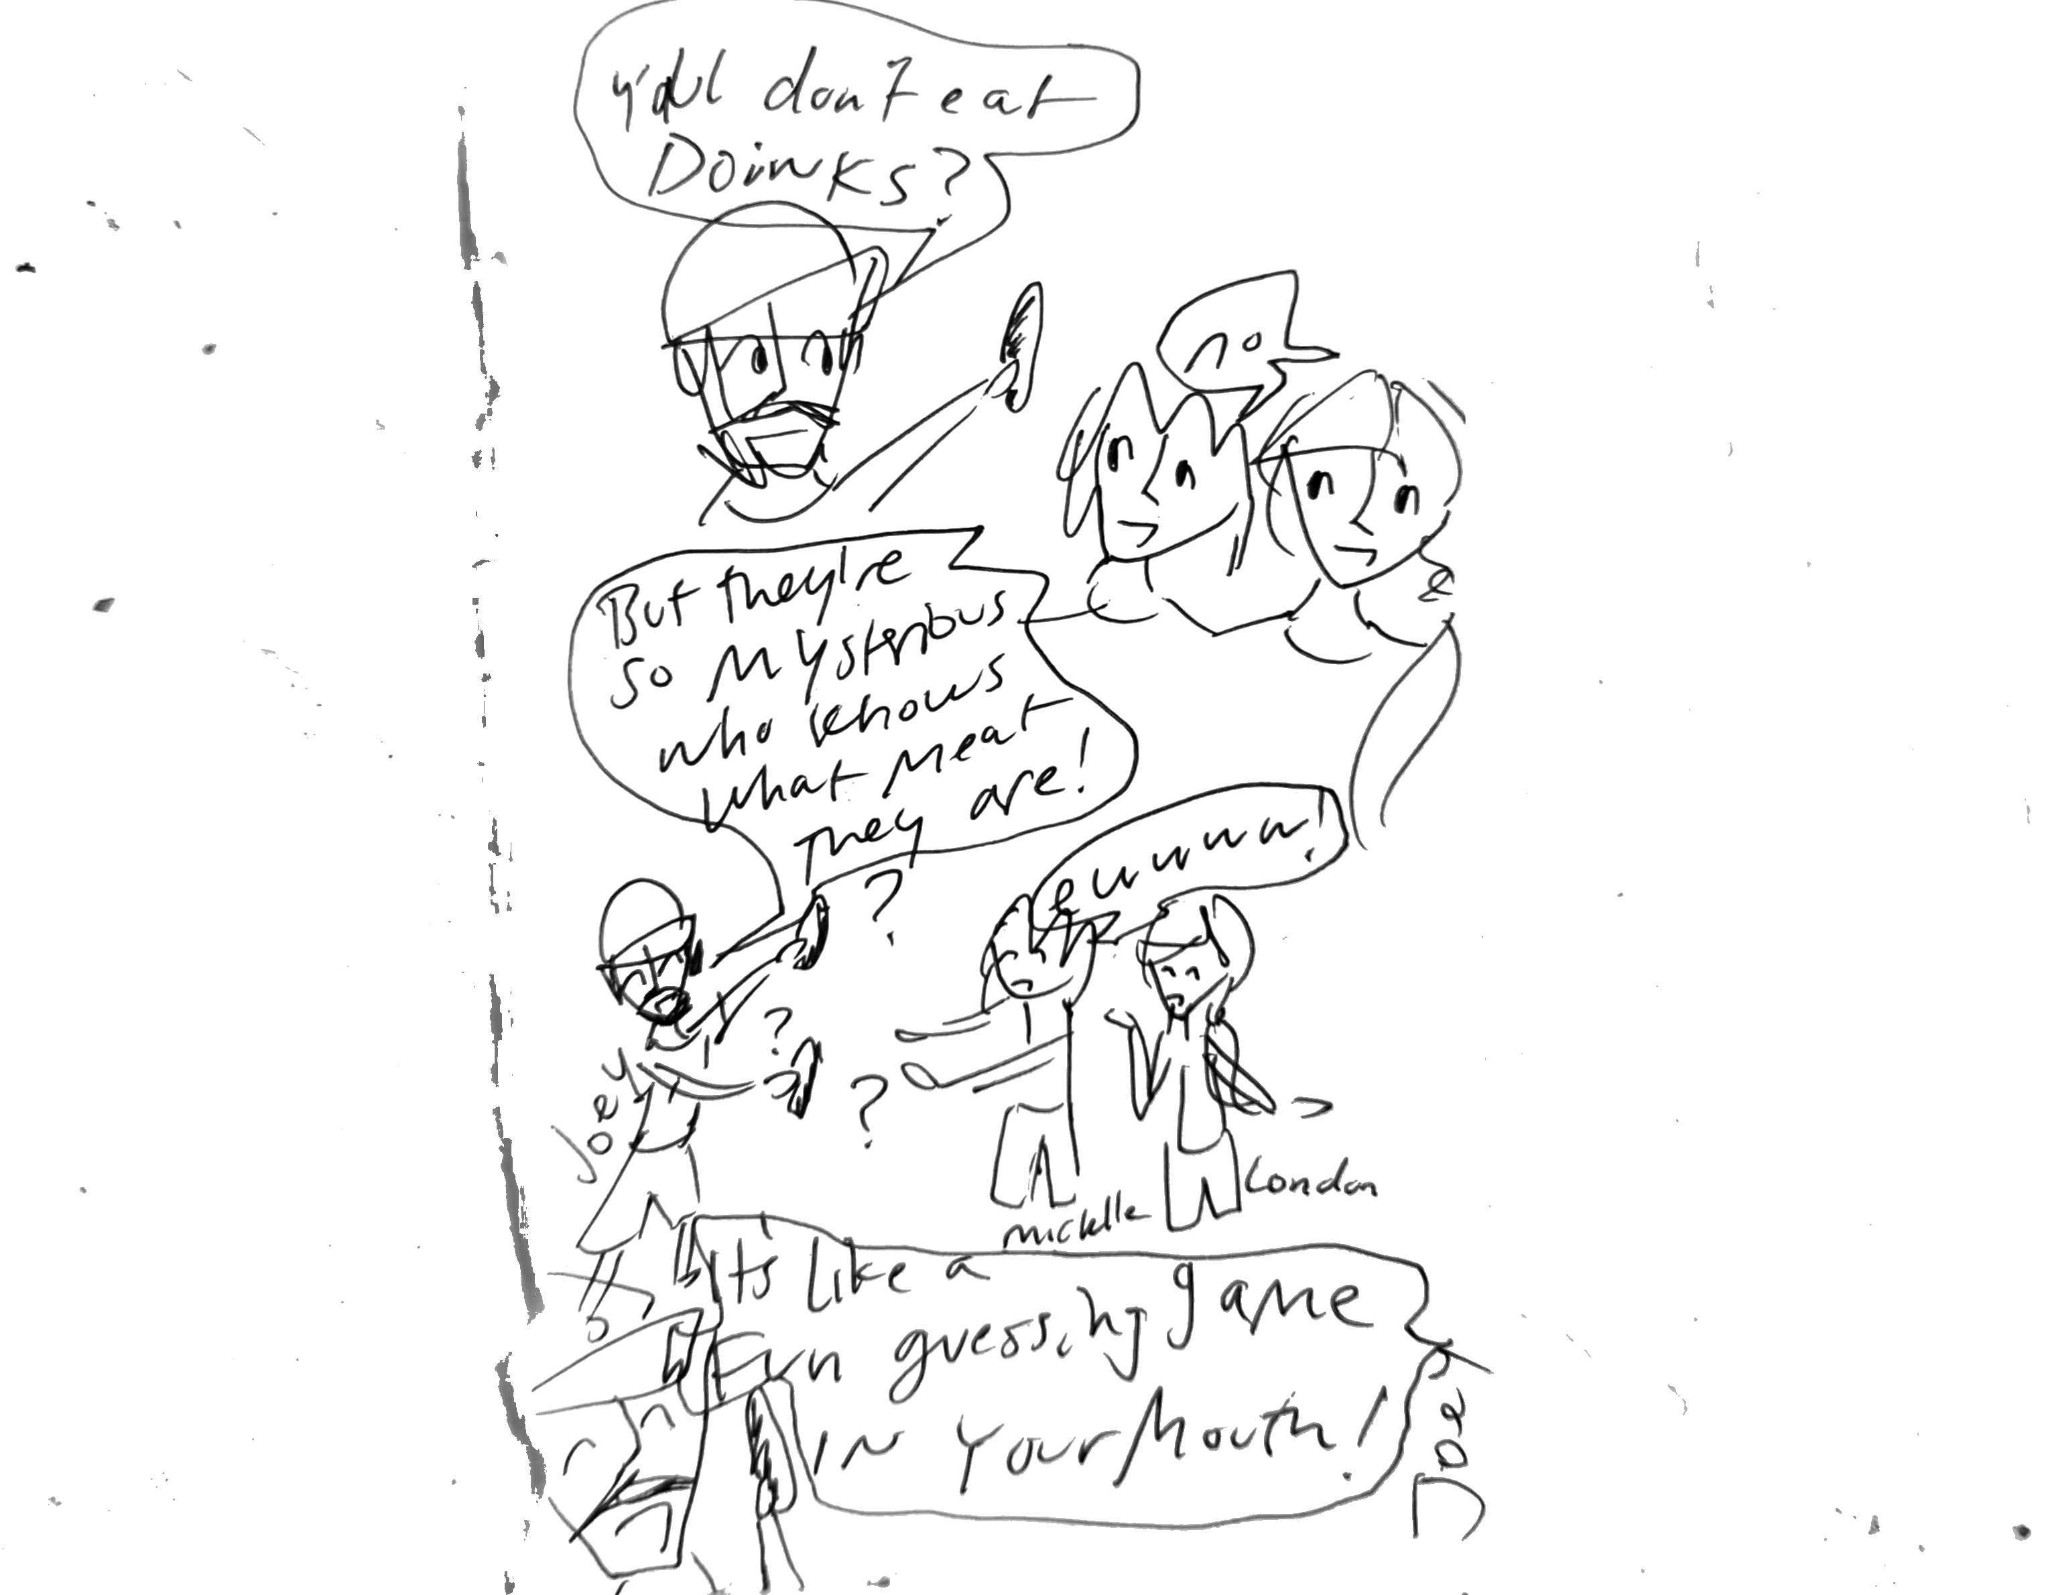 y'all don't eat
Doinks?
no
But they're
so Mysterious
who knows
what meat
They are!
?
ewwww!
?
?
Joey
Michelle
London
It's like a
Fun guessing game
IN your Mouth!